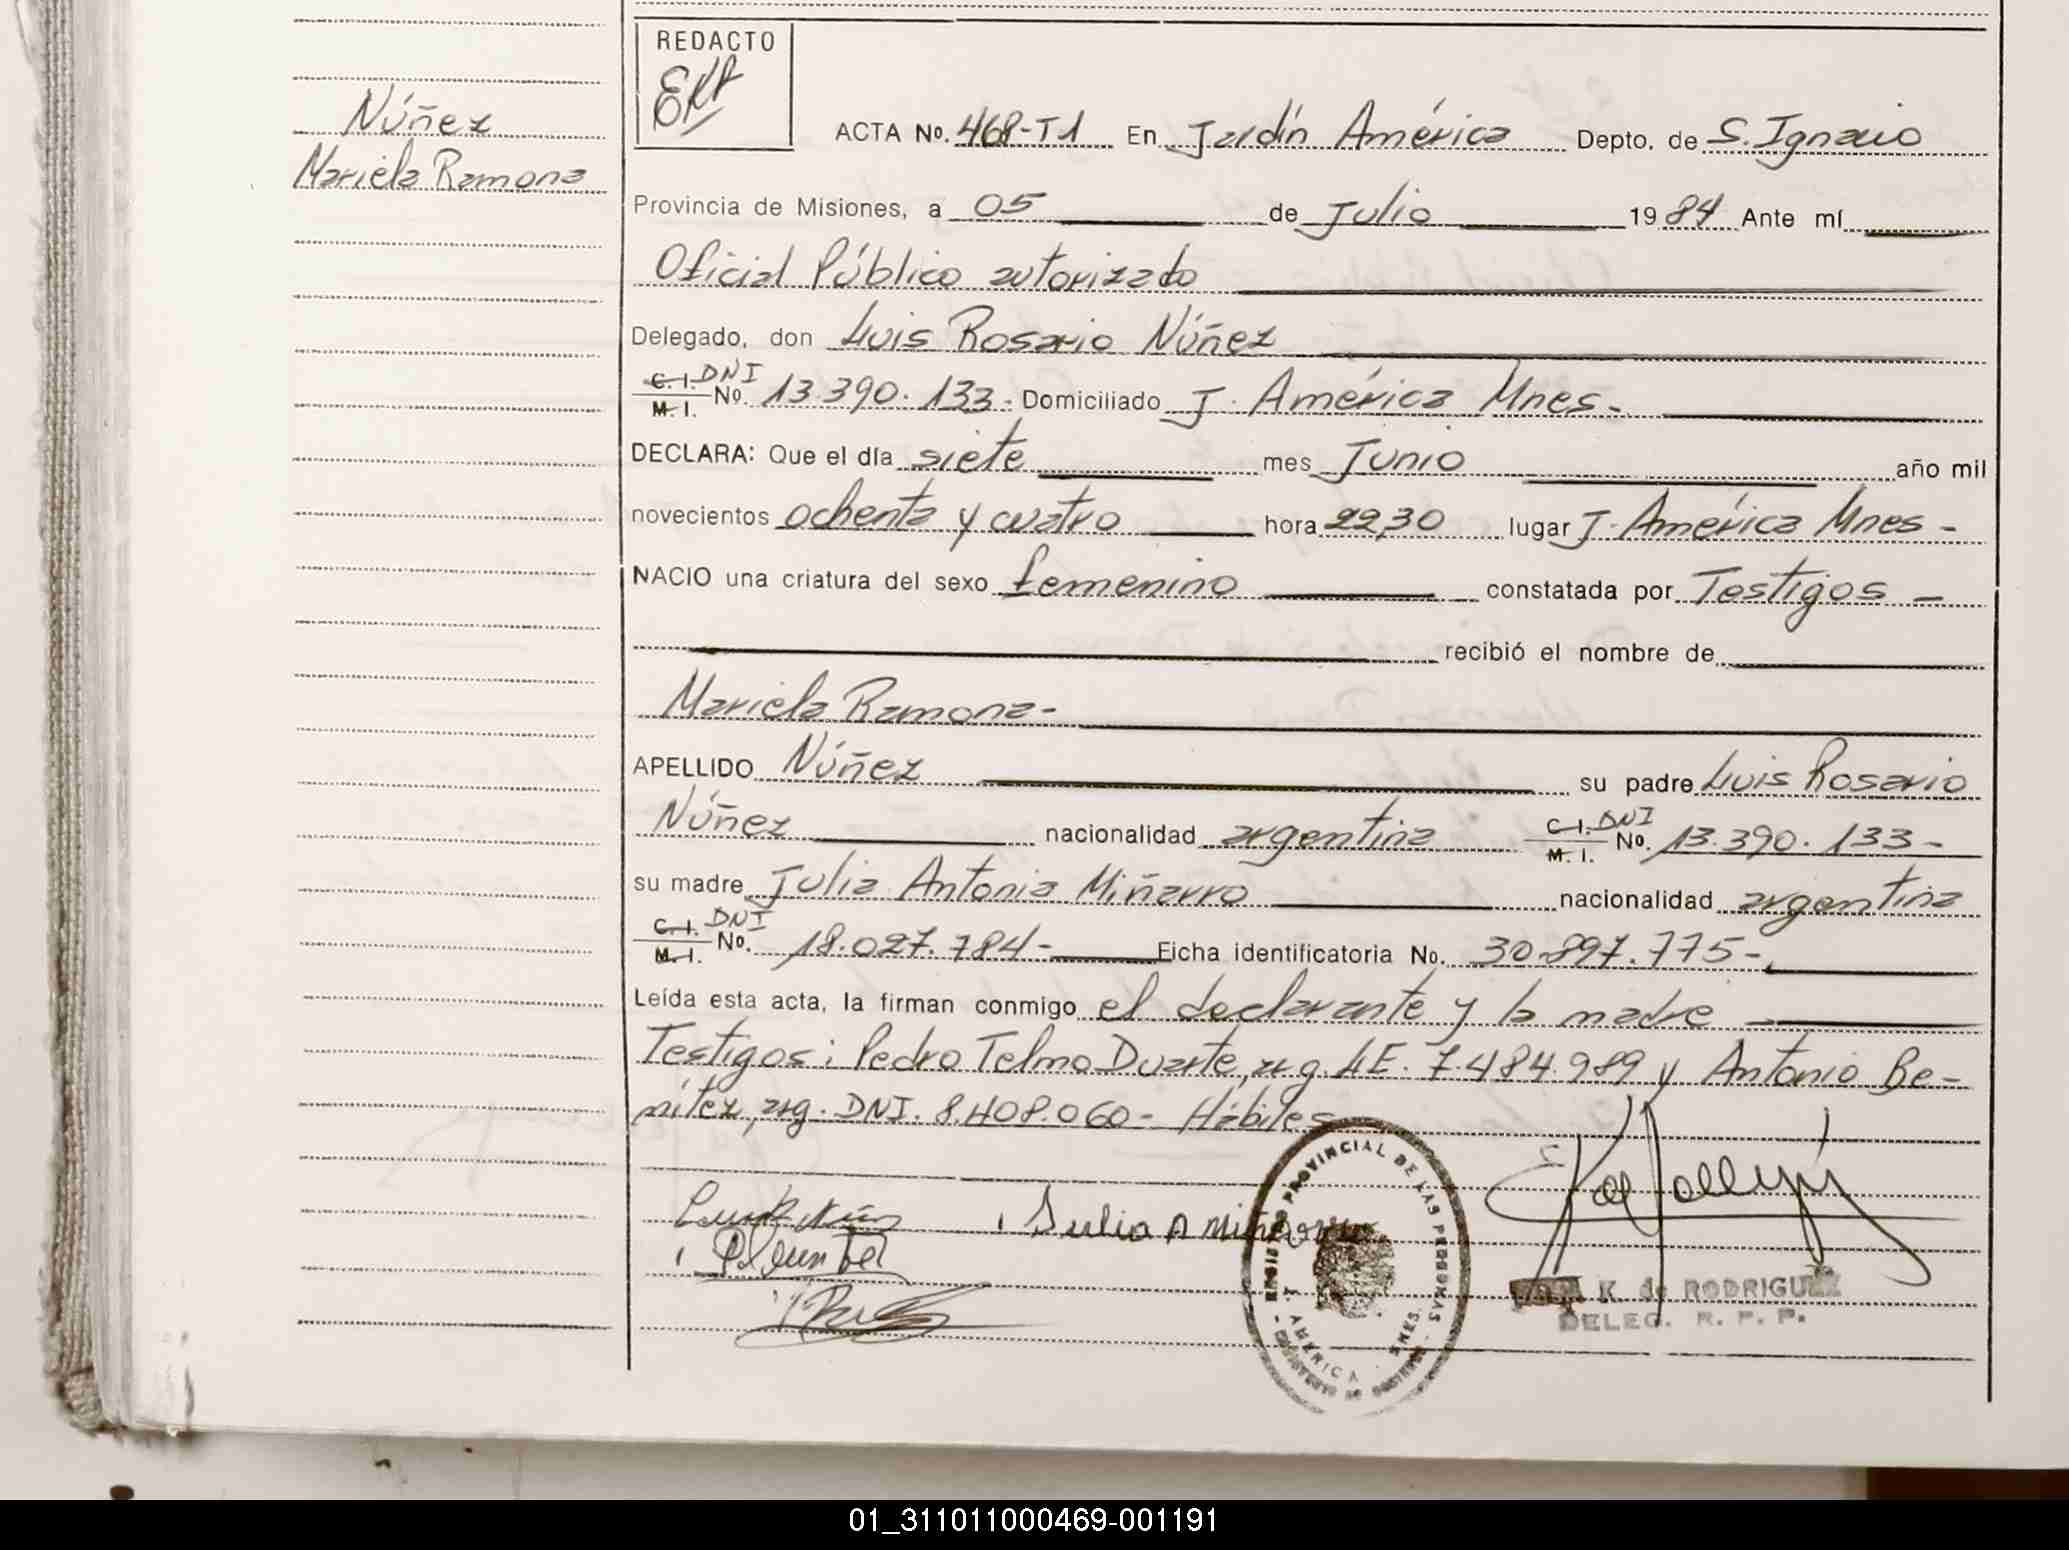 Núñez
Mariela Ramona
REDACTO
ACTA No. 468-T1 En Jardín América Depto. de S. Ignacio
Provincia de Misiones, a 05 de Julio 1984 Ante mí
Oficial Público autorizado
Delegado, don Luis Rosario Núñez
C. I. DNI
M. I. No. 13.390.133- Domiciliado J. América Mnes.-
DECLARA: Que el día siete mes Junio año mil
novecientos ochenta y cuatro hora 22,30 lugar J. América Mnes -
NACIO una criatura del sexo femenino constatada por Testigos -
recibió el nombre de
Mariela Ramona-
APELLIDO Núñez su padre Luis Rosario
Núñez nacionalidad argentina C. I. DNI M. I. No. 13.390.133-
su madre Julia Antonia Miñarro nacionalidad argentina
C. I. DNI
M. I. No. 18.027.784- Ficha identificatoria No. 30.897.775-
Leída esta acta, la firman conmigo el declarante y la madre
Testigos: Pedro Telmo Duarte, arg. LE. 7.484.989 y Antonio Be-
nítez, arg. DNI. 8.408.060- Hábiles
PROVINCIAL DE LAS PERSONAS
J. AMERICA - SMES.
Julia A Miñarro
K. de RODRIGUEZ
DELEG. R. P. P.
01_311011000469-001191